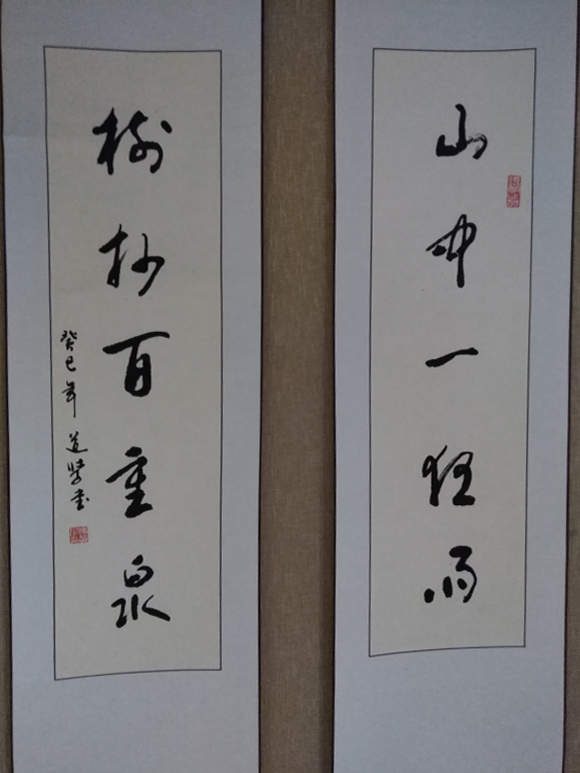 山中一夜雨
樹杪百重泉
癸巳年道